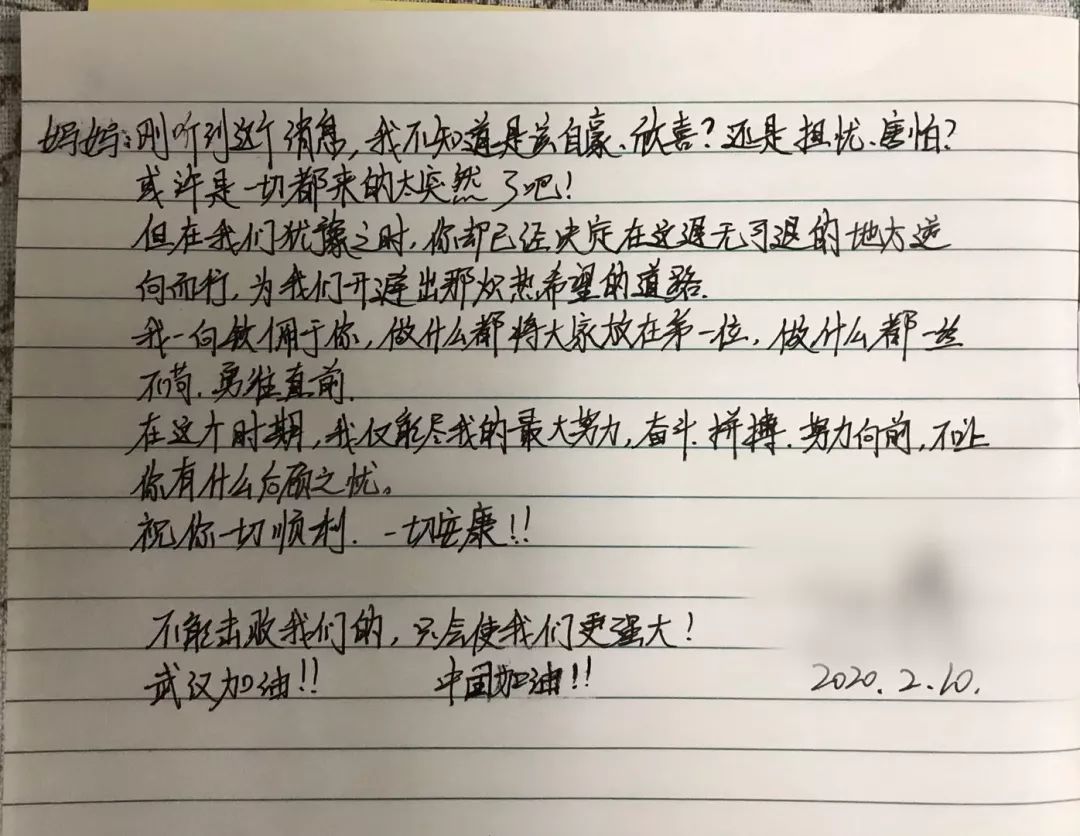 妈妈：刚听到这个消息，我不知道是该自豪、欣喜？还是担忧、害怕？
或许是一切都来的太突然了吧！
但在我们犹豫之时，你却已经决定在这退无可退的地方逆
向而行，为我们开辟出那炽热希望的道路.
我一向敬佣于你，做什么都将大家放在第一位，做什么都一丝
不苟.勇往直前.
在这个时期，我仅能尽我的最大努力，奋斗.拼搏.努力向前，不让
你有什么后顾之忧。
祝你一切顺利.一切安康！！
不能击败我们的，只会使我们更强大！
武汉加油！！ 中国加油！！ 2020.2.10.